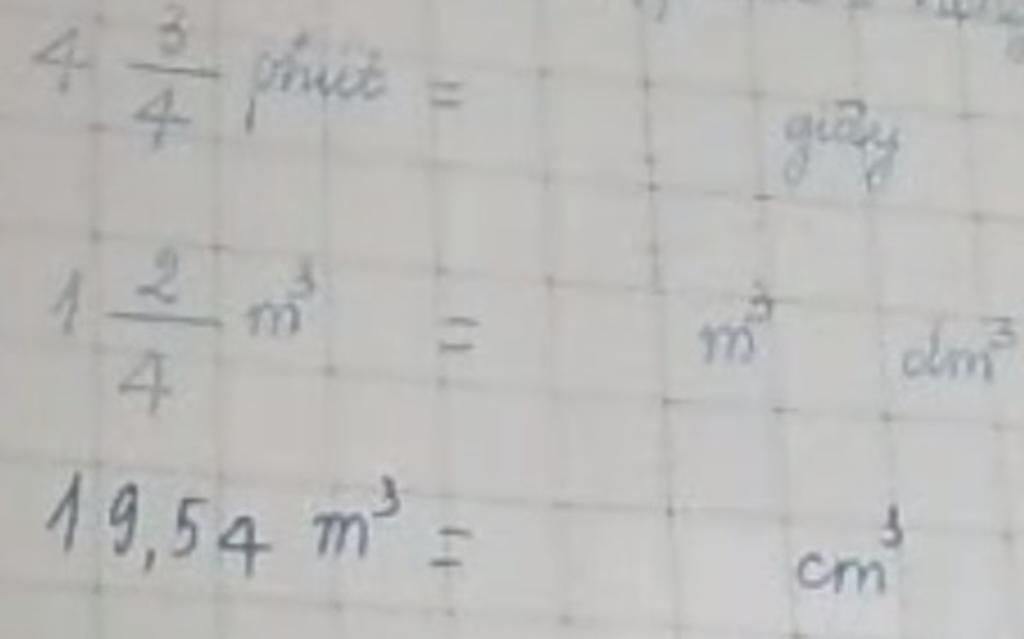 4 3/4 phút = giây
1 2/4 m³ = m³ dm³
19,54 m³ = cm³